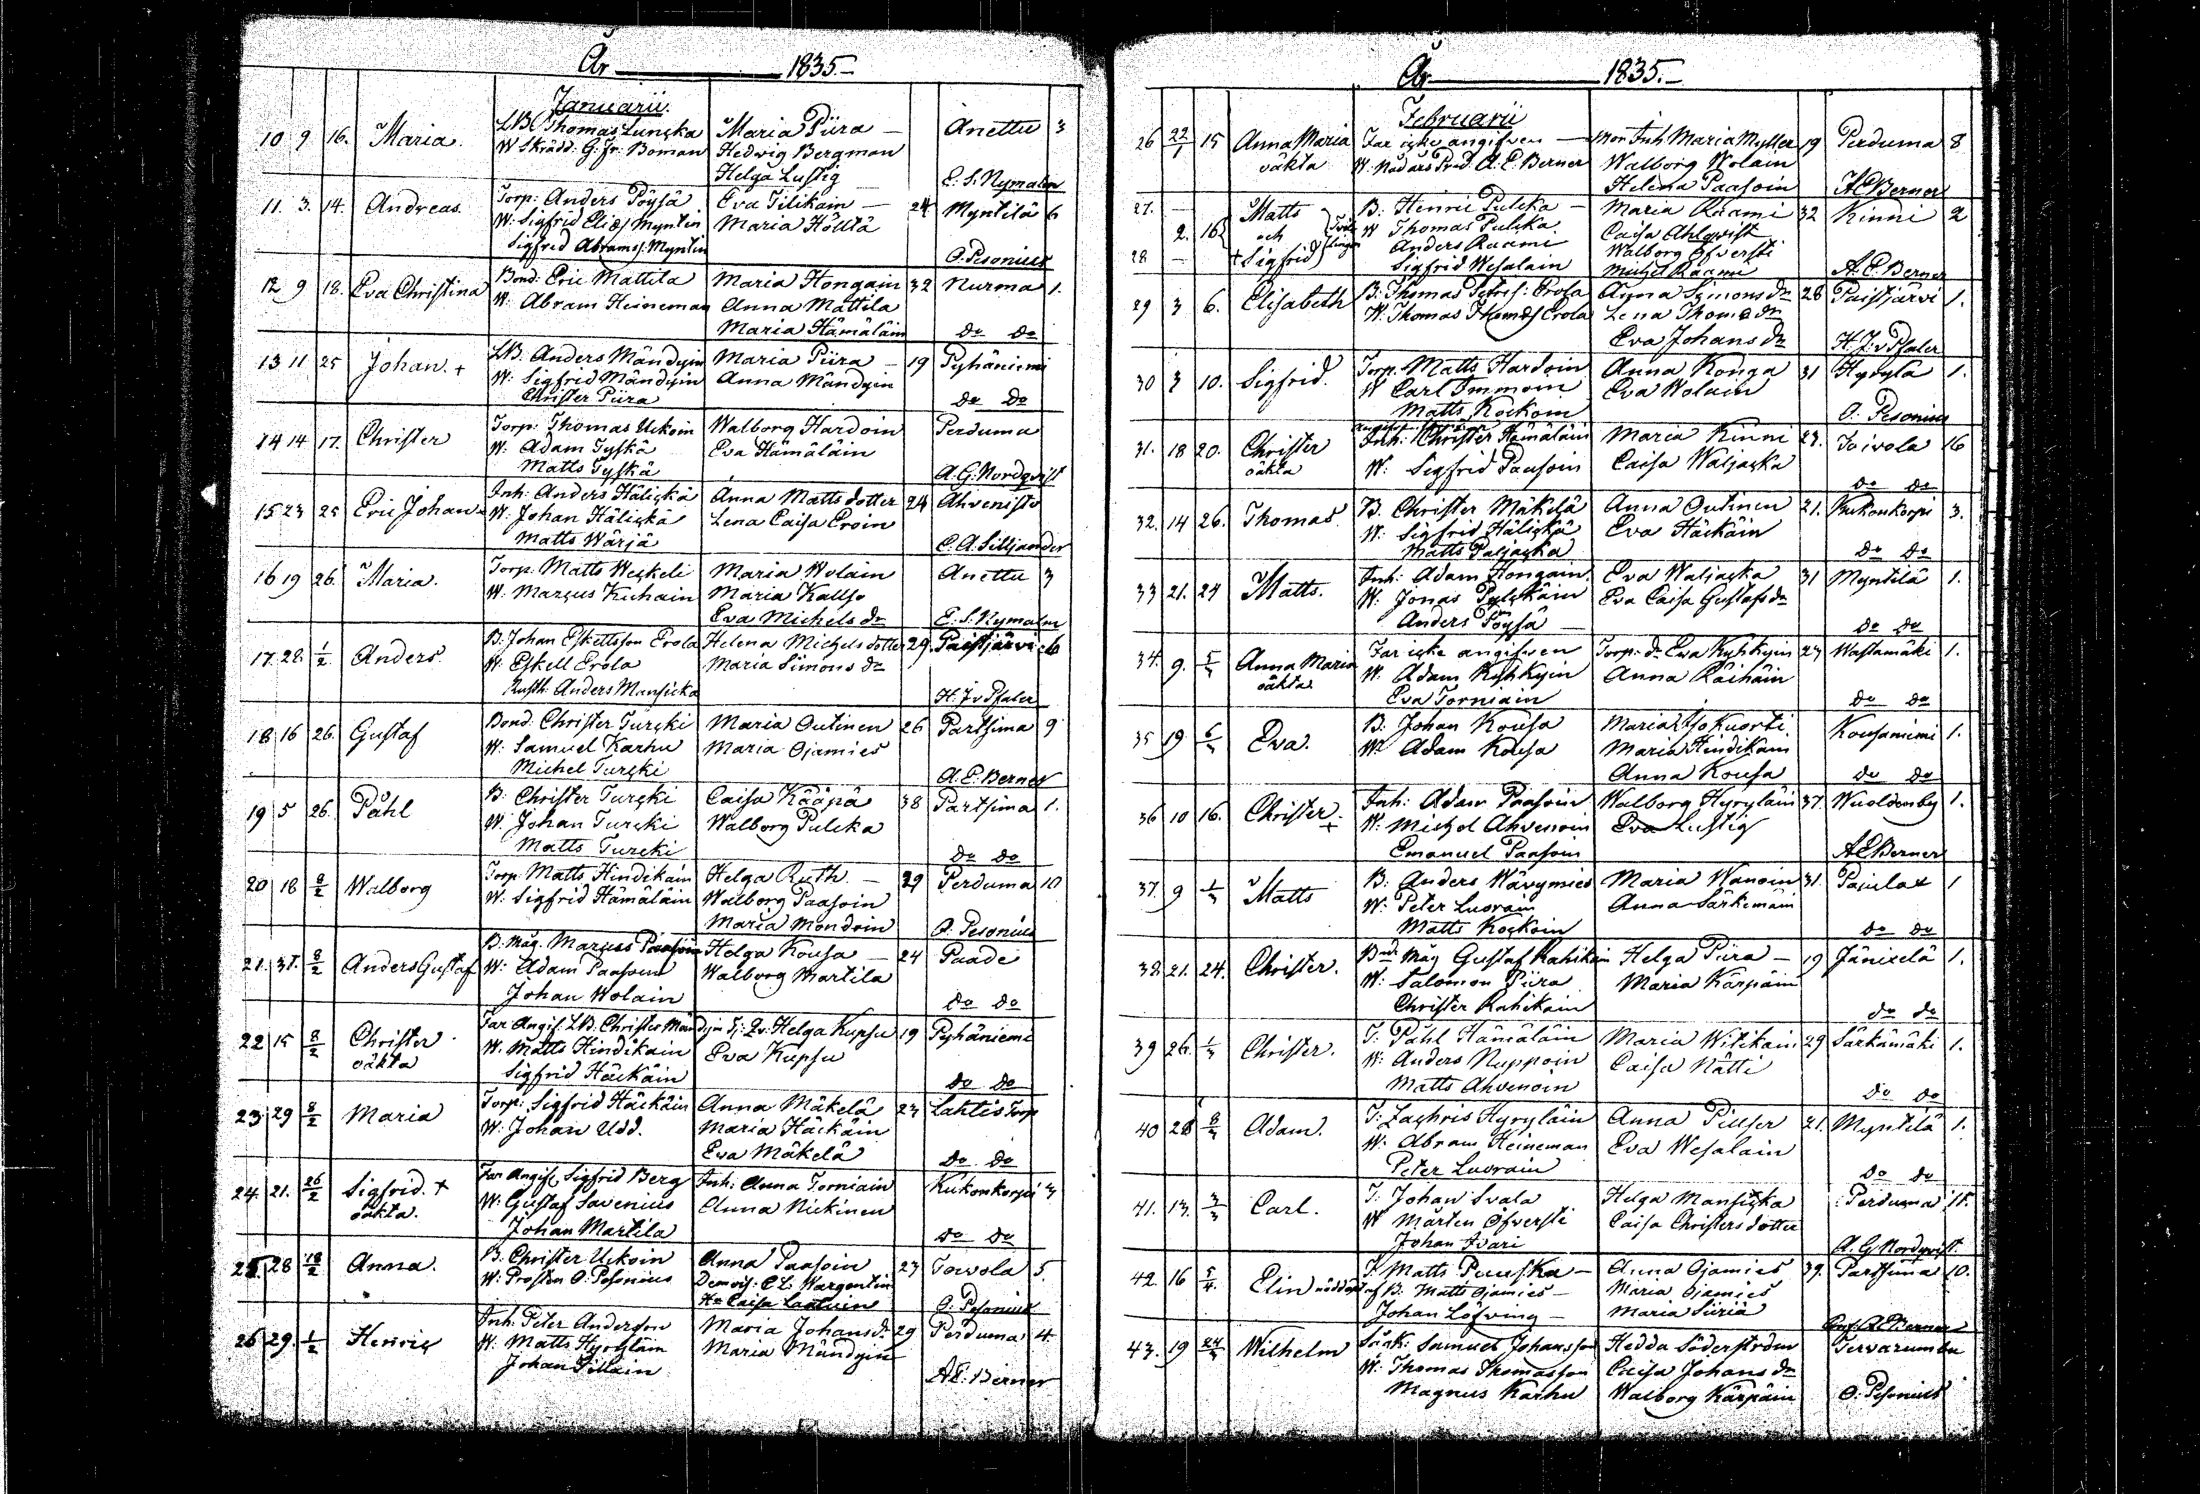 År 1835.
Januarii.
10 9 16. Maria. LB. Thomas Lunska Maria Piira Anettu 3
W Skrädd: G: Fr: Boman Hedvig Bergman
Helga Lustig E. S. Nymalm
11. 3. 14. Andreas. Torp: Anders Pöysä Eva Tilikain 24 Myntilä 6
W: Sigfrid Eliæs Myntin Maria Hölttä
Sigfrid Abramss: Myntin O. Pesonius
12 9 18. Eva Christina Bond: Eric Mattila Maria Hongain 32 Nurma 1.
W: Abram Heineman Anna Mattila
Maria Hämäläin do do
13 11 25 Johan. + LB. Anders Mändyin Maria Piira 19 Pyhäniemi
W: Sigfrid Mändyin Anna Mändyin
Christer Piira do do
14 14 17. Christer Torp: Thomas Uckoin Walborg Hardoin Perduma
W: Adam Tyskä Eva Hämäläin
Matts Tyskä A. G. Nordqvist
15 23 25 Eric Johan Inh: Anders Häliskä Anna Mattsdotter 24 Ahvenisto
W: Johan Häliskä Lena Caisa Eroin
Matts Wärjä C. A. Silljander
16 19 26. Maria. Torp. Matts Weskeli Maria Wolain Anettu 3
W. Marcus Kuhain Maria Kallio
Eva Michels dr E. S. Nymalm
17. 28. 1/2 Anders. B: Johan Eskelsson Erola Helena Michelsdotter 29. Paistjärvi 6
W. Eskell Erola Maria Simons dr
Rusth: Anders Mansicka H: J v Pfaler
18 16 26. Gustaf Bond: Christer Turcki Maria Outinen 26 Partsima 9
W: Samuel Karhu Maria Ojamies
Michel Turcki A. E. Berner
19 5 26. Påhl B: Christer Turcki Caisa Kääpä 38 Partsima 1.
W. Johan Turcki Walborg Pulcka
Matts Turcki do do
20 18 8/2 Walborg Torp Matts Hindikain Helga Ruth. 29 Perduma 10
W: Sigfrid Hämäläin Walborg Paasoin
Maria Mondoin O. Pesonius
21. 31. 8/2 Anders Gustaf B. Måg. Marcus Paasoin Helga Kousa 24 Paade
W: Adam Paasoin Walborg Martila
Johan Wolain do do
22 15 8/2 Christer Far Angif. LB: Christer Mändyin Tj: Qv: Helga Kupsu 19 Pyhäniemi
oäkta W. Matts Hindikain Eva Kupsu
Sigfrid Häckäin do do
23 29 8/2 Maria Torp: Sigfrid Häckäin Anna Mäkelä 23 Lahtis Torp
W: Johan Udd. Maria Häckäin
Eva Mäkelä do do
24. 21. 26/2 Sigfrid. + Far Angif. Sigfrid Berg Inh: Anna Torniain Kukonkorpi 3
oäkta. W: Gustaf Savenius Anna Nickinen
Johan Martila do do
25. 28 18/2 Anna. B. Christer Uckoin Anna Paasoin 23 Toivola 5.
W: Prosten O. Pesonius Demois: C L Wargentin
Hu Caisa O. Pesonius
26 29. 1/2 Henric Inh: Peter Anderson Maria Johansdr 29 Perduma 4
W. Matts Hyryläin Maria Mändyin
Johan Pillain A E. Berner
År 1835.
Februarii
26 22/1 15 Anna Maria Far icke angifven Mor Inh Maria Myller 19 Perduma 8
oäkta W: Nådårs Pred. A. E. Berner Walborg Wolain
Helena Paasoin A E Berner
27. Matts B: Henric Pulcka Maria Raami 32 Kinni 2
2. 16 och Tvillingar W Thomas Pulcka. Caisa Ahlqvist
Anders Raami Walborg Öfversti
28 + Sigfrid Sigfrid Wesalain Michel Raami A. E. Berner
29 3 6. Elisabeth B: Thomas Petri s: Erola Anna Simons dr 28 Paistjärvi 1.
W. Thomas Thomæs Erola Lena Thomæ dr
Eva Johans dr H. J: v Pfaler
30 3 10. Sigfrid. Torp. Matts Hardoin Anna Konga 31 Hyrylä 1.
W Carl Immoin Eva Wolain
Matts Kockoin O. Pesonius
31. 18 20. Christer Inh: Christer Hämäläin Maria Kinni 23. Toivola 16
oäkta W: Sigfrid Paasoin Caisa Waljacka
do do
32. 14 26. Thomas. B. Christer Mäkelä Anna Outinen 21. Kukonkorpi 3.
W: Sigfrid Häliskä Eva Häckäin
Matts Paljacka do do
33 21. 24 Matts. Inh: Adam Hongain. Eva Waljacka 31 Myntilä 1.
W: Jonas Pylckäin Eva Caisa Gustafs dr
Anders Pöysä do do
34. 9. 5/3 Anna Maria Far icke angifven Torp: dr Eva Kyhkyin 23 Wastamäki 1.
oäkta W. Adam Kyhkyin Anna Räihäin
Eva Torniain do do
35 19 6/3 Eva. B: Johan Kousa Maria Isokuorti Kousaniemi 1.
W. Adam Kousa Maria Hindikain
Anna Kousa do do
36 10 16. Christer + Inh: Adam Paasoin Walborg Hyryläin 37. Wuoldenby 1.
W: Michel Ahvenoin Eva Lustig
Emanuel Paasoin A E Berner
37. 9 1/3 Matts B: Anders Wärynies Maria Wanoin 31. Pajula 1
W: Peter Luorain Anna Särkimäin
Matts Kockoin do do
38. 21. 24. Christer. Bnd: Måg Gustaf Rahikain Helga Piira 19 Jänixelä 1.
W: Salomon Piira Maria Kärpäin
Christer Rahikain do do
39 26. 1/3 Christer. T: Påhl Hämäläin Maria Witikain 29 Särkämäki 1.
W: Anders Nuppoin Caisa Nätti
Matts Ahvenoin do do
40 28 8/3 Adam. T: Zachris Hyryläin Anna Piuser 21. Myntilä 1.
W: Abram Heineman Eva Wesalain
Peter Luorain do do
41. 13. 3/3 Carl. T: Johan Svala Helga Mansicka Perduma 11.
W Mårten Öfversti Caisa Christersdotter
Johan Ivari A. G Nordqvist
42. 16 5/4. Elin nöddöpt T. Matts Puuska Anna Ojamies 39. Partsima 10.
af B. Matts Ojamies Maria Ojamies
Johan Löfving Maria Siiriä A E Berner
43. 19 24/3 Wilhelm Samuel Johansson Hedda Söderström Tervarumbu
W: Thomas Thomasson Caisa Johans dr
Magnus Karhu Walborg Kärpäin O: Pesonius